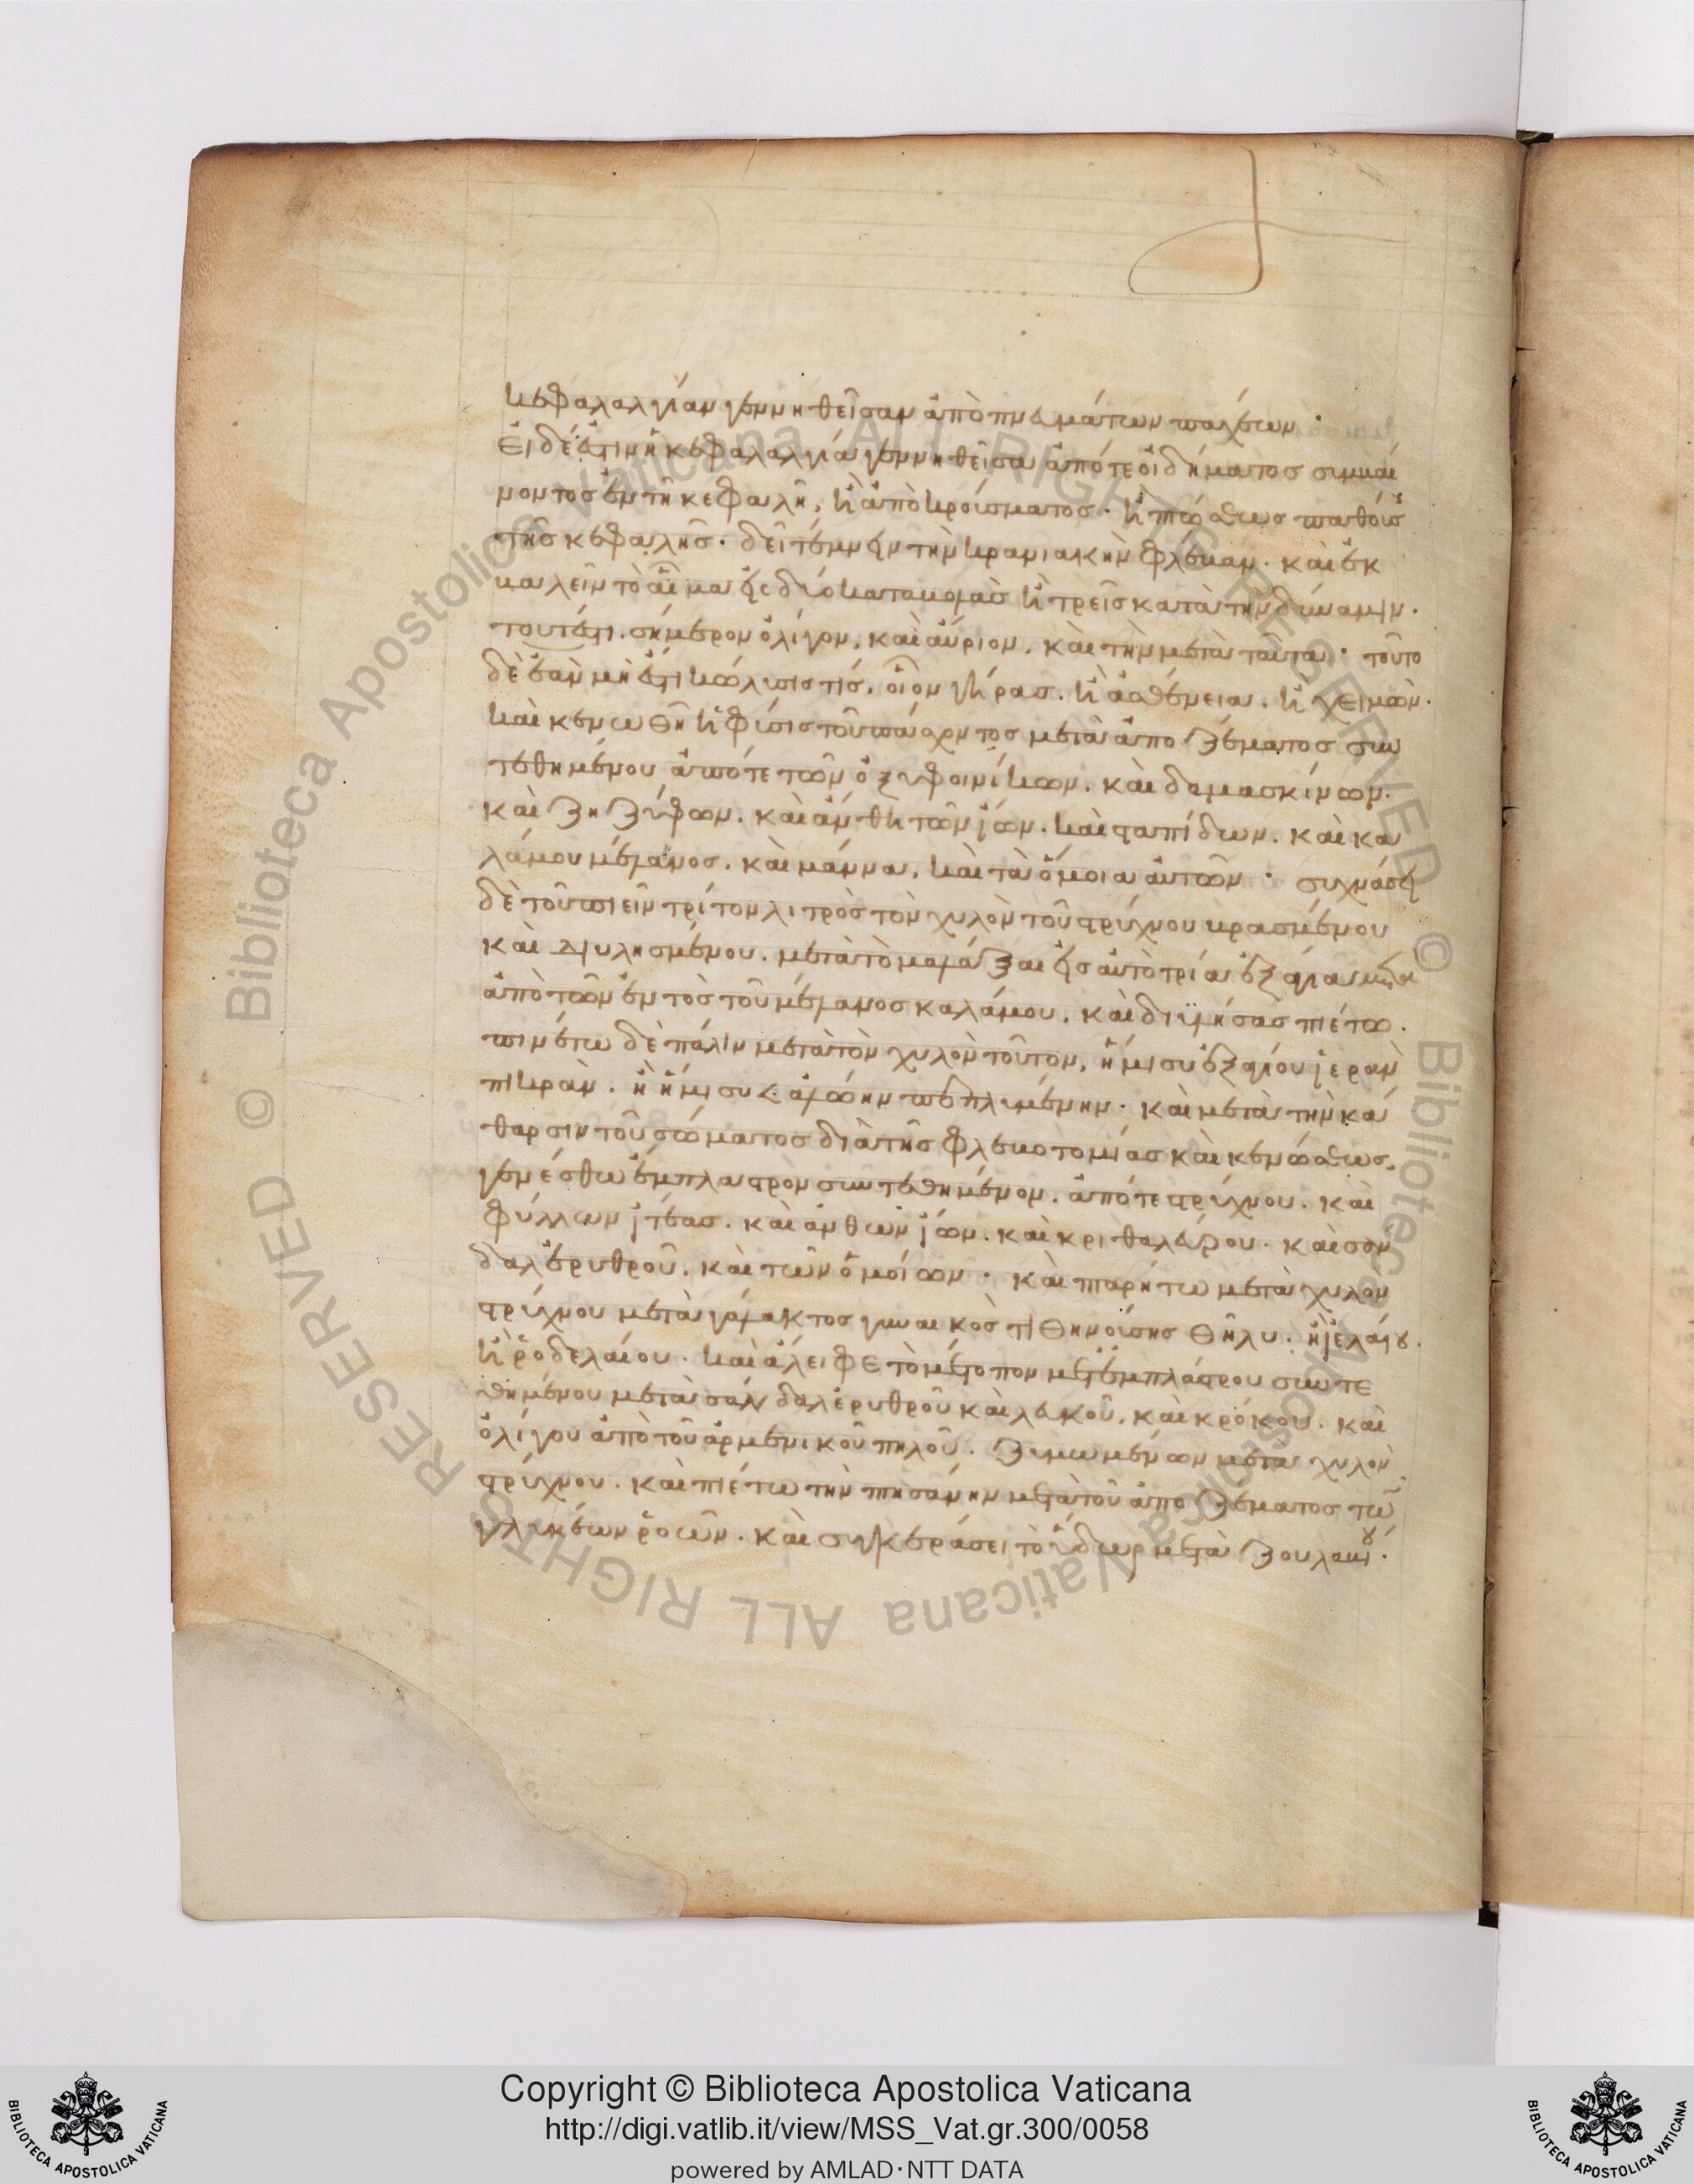 κεφαλαλγίαν γεννηθεῖσαν ἀπὸ πνευμάτων παχέων ·
Εἰ δέ ἐστιν ἡ κεφαλαλγία γεννηθεῖσα ἀπό τε οἰδήματος συμβαί
νοντος ἐν τῆ κεφαλῆ, ἢ ἀπὸ κρούσματος · ἢ πτώσεως παθούσ
τῆς κεφαλῆς · δεῖ τέμνειν τὴν κρανιακὴν φλέβαν · καὶ ἐκ
βαλεῖν τὸ αἷμα εἰς δύο κατανομὰς ἢ τρεῖς κατὰ τὴν δύναμιν ·
τουτέστι · σήμερον ὀλίγον, καὶ αὔριον, καὶ τὴν μετὰ ταῦτα · τοῦτο
δὲ ἐὰν μὴ ἐστὶ κώλυσις τίς, οἷον γῆρας, ἢ ἀσθένεια, ἢ χειμών ·
καὶ κενωθῆ ἡ φύσις τοῦ πάσχοντος μετὰ ἀποζέματος συν
τεθημένου ἀπό τε τῶν ὀξυφοινίκων, καὶ δαμασκίνων ·
καὶ ζηζύφων, καὶ ἀνθὴ τῶν ἴων, καὶ σταπίδων, καὶ κα
λάμου μέλανος, καὶ μάννα, καὶ τὰ ὅμοια αὐτῶν · συχνάσει
δὲ τοῦ πιεῖν τρίτον λιτρὸς τὸν χυλὸν τοῦ στρύχνου βρασμένου
καὶ διυλησμένου, μετὰ τὸ μαλάξαι εἰς αὐτὸ τρία ἐξάγια
ἀπὸ τῶν ἐντὸς τοῦ μέλανος καλάμου, καὶ διϋλήσας πιέτω ·
πινέτω δὲ πάλιν μετὰ τὸν χυλὸν τοῦτον, ἥμισυ ἐξαγίου ἱερὰν
πικράν · ἢ ἥμισυ ἀλόην πεπλυμένην · καὶ μετὰ τὴν κά
θαρσιν τοῦ σώματος διὰ τῆς φλεβοτομίας καὶ κενώσεως,
γενέσθω ἔμπλαστρον συντεθημένον, ἀπό τε στρύχνου, καὶ
φύλλων ἰτέας, καὶ ἀνθῶν ἴων, καὶ κριθαλεύρου, καὶ σαν
δαλ ἐρυθροῦ, καὶ τῶν ὁμοίων · καὶ παρήτω μετὰ χυλὸν
στρύχνου μετὰ γάλακτος γυναικὸς τιθηνούσης θῆλυ, ἢ ἰελαίου ·
ἢ ῥοδελαίου · καὶ ἄλειφε τὸ μέτοπον μετ' ἐμπλάστρου συντε
θημένου μετὰ σανδαλ ἐρυθροῦ καὶ λευκοῦ, καὶ κρόκου, καὶ
ὀλίγου ἀπὸ τοῦ ἀρμενικοῦ πηλοῦ, ζυμωμένων μετὰ χυλὸν
στρύχνου · καὶ πιέτω τὴν πησάνην μετὰ τοῦ ἀποζέματος τῶν
γλυκέων ῥοιῶν · καὶ συγκεράσει τὸ ὕδωρ μετὰ ζουλαπίου ·
Copyright © Biblioteca Apostolica Vaticana
http://digi.vatlib.it/view/MSS_Vat.gr.300/0058
powered by AMLAD·NTT DATA
BIBLIOTECA APOSTOLICA VATICANA
BIBLIOTECA APOSTOLICA VATICANA
© Biblioteca Apostolica Vaticana ALL RIGHTS RESERVED
© Biblioteca Apostolica Vaticana ALL RIGHTS RESERVED